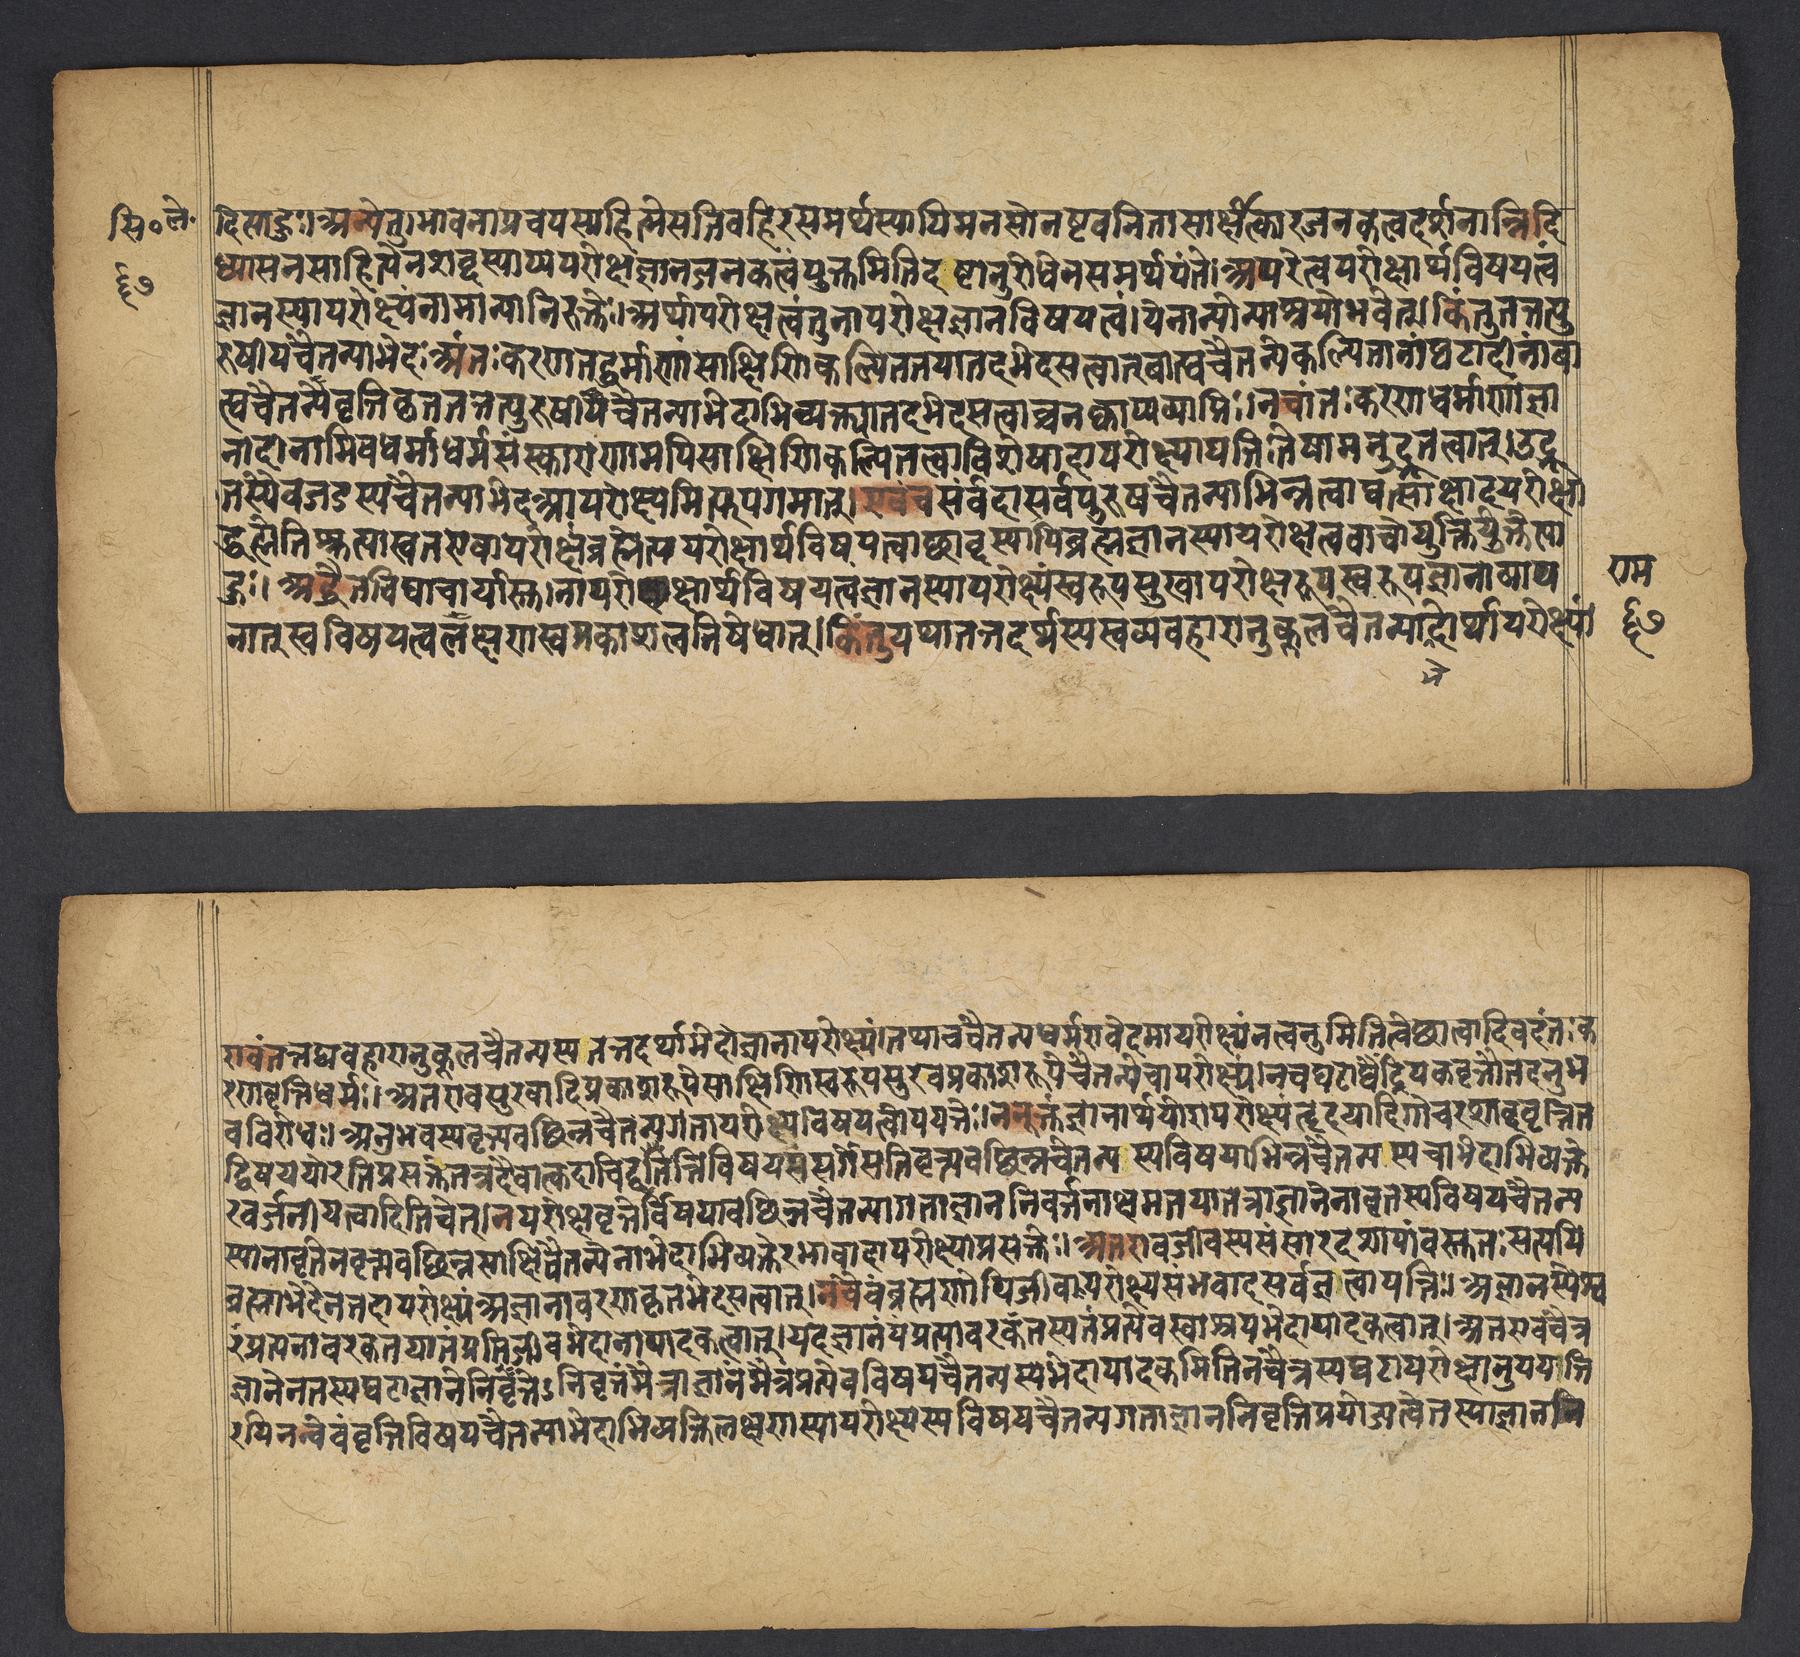 सि॰ले॰
६७
दित्याहुः। अन्येतु। भावनाप्रचयस्यहित्येसतिबहिरसमर्थस्यापिमनसोनष्टवनितासाक्षात्कारजनकत्वदर्शनान्निदि
ध्यासनसाहित्येनशब्दस्याप्यपरोक्षज्ञानजनकत्वंयुक्तमितिदृष्टानुरोधेनसमर्थयंते। अपरेत्वपरोक्षार्थविषयत्वं
ज्ञानस्यापरोक्ष्यंनामान्यानिरुक्तेः। अर्थापरोक्षत्वंतुनापरोक्षज्ञानविषयत्वं। येनान्योन्याश्रयोभवेत्। किंतुतत्तत्पु
रुषीयचैतन्याभेदः अंतःकरणतद्धर्माणांसाक्षिणिकल्पिततयातदभेदसत्वात्बाह्यचैतन्येकल्पितानांघटादीनांबा
ह्यचैतन्येवृत्तिकृततत्तत्पुरुषीयचैतन्याभेदाभिव्यक्त्यातदभेदसत्वाच्चनक्वाप्यव्याप्तिः। नचांतःकरणधर्माणांज्ञा
नादीनामिवधर्माधर्मसंस्काराणामपिसाक्षिणिकल्पितत्वाविशेषादापरोक्ष्यापत्तिस्तेषामनुद्भूतत्वात्। उद्भू
तस्यैवजडस्यचैतन्याभेदआपरोक्ष्यमित्यभ्युपगमात्। एवंचसर्वदासर्वपुरुषचैतन्याभिन्नत्वाद्यत्साक्षादपरोक्षा
द्ब्रह्मेतिश्रुत्यास्वतएवापरोक्षंब्रह्मेत्यपरोक्षार्थविषयत्वाच्छाब्दस्यापिब्रह्मज्ञानस्यापरोक्षत्ववाचोयुक्तिर्युक्तेत्या
हुः। अद्वैतविद्याचार्यास्तु। नापरोक्षार्थविषयत्वंज्ञानस्यापरोक्ष्यंस्वरूपसुखापरोक्षरूपस्वरूपज्ञानाव्याप्य
नात्स्वविषयत्वलक्षणस्वप्रकाशत्वनिषेधात्। किंतुयथातत्तदर्थस्यस्वव्यवहारानुकूलचैतन्याभेदोर्थापरोक्ष्यं
राम
६७
एवंतत्तद्व्यवहारानुकूलचैतन्यस्यतत्तदर्थाभेदोज्ञानापरोक्ष्यं। तथाचचैतन्यधर्मएवेदमापरोक्ष्यंनत्वनुमितित्वेच्छात्वादिवदंतःक
रणवृत्तिधर्मः। अतएवसुखादिप्रकाशरूपेसाक्षिणिस्वरूपसुखप्रकाशरूपेचैतन्येचापरोक्ष्यं। नचघटाद्यैंद्रियकवृत्तौतदनुभ
वविरोधः। अनुभवस्यवृत्त्यवच्छिन्नचैतन्यगतापरोक्ष्यविषयत्वोपपत्तेः। ननूक्तंज्ञानार्थयोरापरोक्ष्यंत्दृदयादिगोचरशाब्दवृत्तित
द्विषययोरतिप्रसक्तंतत्रदैवात्कदाचिद्वृत्तिविषयसंसर्गेसतिवृत्त्यवच्छिन्नचैतन्यस्यविषयाभिन्नचैतन्यस्यचाभेदाभिव्यक्ते
रवर्जनीयत्वादितिचेत्। नपरोक्षवृत्तेर्विषयावच्छिन्नचैतन्यगताज्ञाननिवर्त्तनाक्षमतयातत्राज्ञानेनावृतस्यविषयचैतन्य
स्यानावृतेनवृत्त्यवच्छिन्नसाक्षिचैतन्येनाभेदाभिव्यक्तेरभावादापरोक्ष्याप्रसक्तेः। अतएवजीवस्यसंसारदशायांवस्तुतःसत्यपि
ब्रह्माभेदेनतदापरोक्ष्यंअज्ञानावरणकृतभेदसत्वात्। नचैवंब्रह्मणोपिजीवापरोक्ष्यासंभवादसर्वज्ञत्वापत्तिः। अज्ञानस्येश्व
रंप्रत्यनावरकतयातंप्रतिजीवभेदानापादकत्वात्। यदज्ञानंयंप्रत्यावरकंतस्यतंप्रत्येवस्वाश्रयभेदापादकत्वात्। अतएवचैत्र
ज्ञानेनतस्यघटाज्ञानेनिवृत्तेऽनिवृत्तंमैत्राज्ञानंमैत्रंप्रत्येवविषयचैतन्यस्यभेदापादकमितिनचैत्रस्यघटापरोक्षानुपपत्ति
रपिनन्वेवंवृत्तिविषयचैतन्याभेदाभिव्यक्तिलक्षणस्यापरोक्ष्यस्यविषयचैतन्यगताज्ञाननिवृत्तिप्रयोज्यत्वेतस्याज्ञाननि